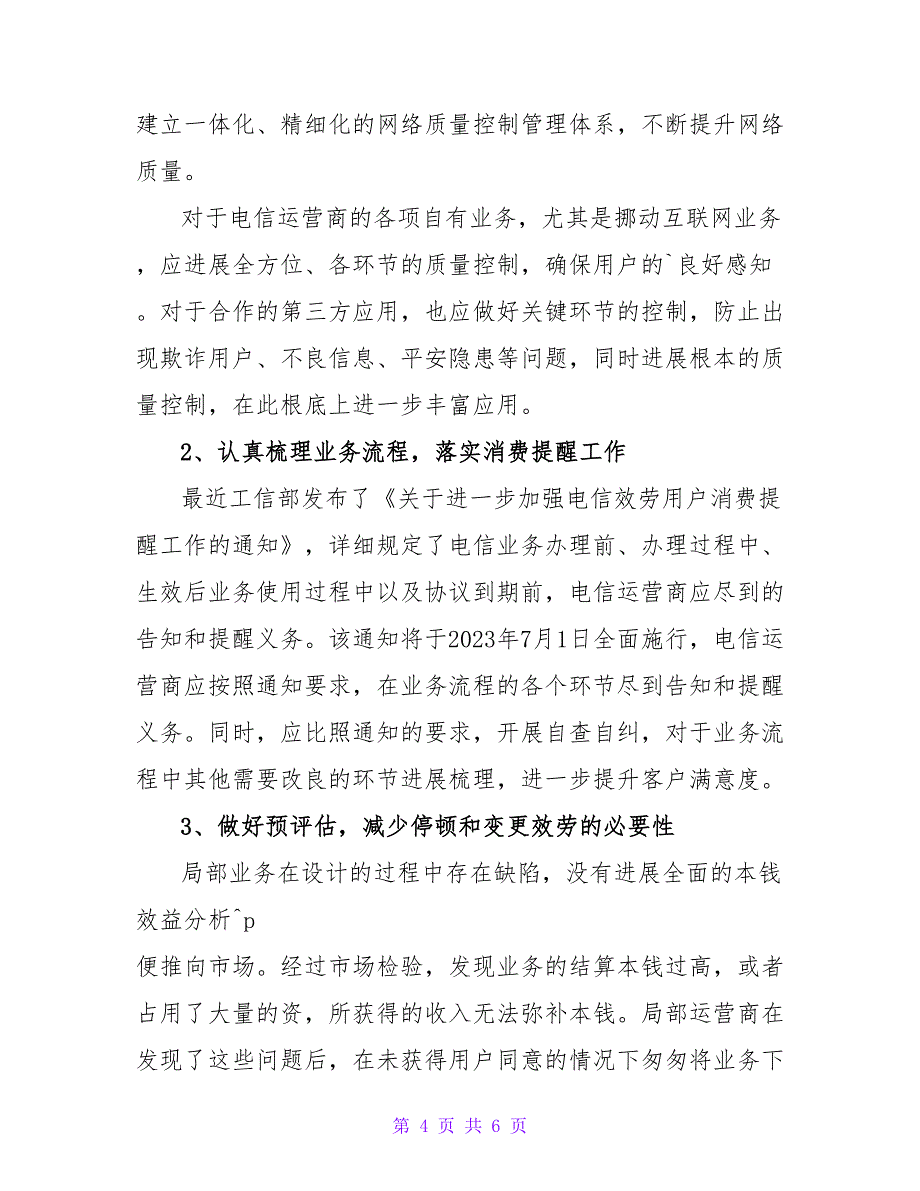 建立一体化、精细化的网络质量控制管理体系，不断提升网络
质量。
对于电信运营商的各项自有业务，尤其是挪动互联网业务
，应进展全方位、各环节的质量控制，确保用户的`良好感知
。对于合作的第三方应用，也应做好关键环节的控制，防止出
现欺诈用户、不良信息、平安隐患等问题，同时进展根本的质
量控制，在此根底上进一步丰富应用。
2、认真梳理业务流程，落实消费提醒工作
最近工信部发布了《关于进一步加强电信效劳用户消费提
醒工作的通知》，详细规定了电信业务办理前、办理过程中、
生效后业务使用过程中以及协议到期前，电信运营商应尽到的
告知和提醒义务。该通知将于2023年7月1日全面施行，电信运
营商应按照通知要求，在业务流程的各个环节尽到告知和提醒
义务。同时，应比照通知的要求，开展自查自纠，对于业务流
程中其他需要改良的环节进展梳理，进一步提升客户满意度。
3、做好预评估，减少停顿和变更效劳的必要性
局部业务在设计的过程中存在缺陷，没有进展全面的本钱
效益分析^p
便推向市场。经过市场检验，发现业务的结算本钱过高，或者
占用了大量的资，所获得的收入无法弥补本钱。局部运营商在
发现了这些问题后，在未获得用户同意的情况下匆匆将业务下
第 4 页 共 6 页